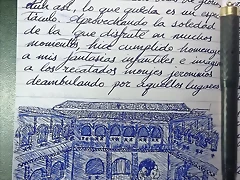 aún así, lo que queda es un espec-
táculo. Aprovechando la soledad
de la que disfruté en muchos
momentos hice cumplido homenaje
a mis fantasías infantiles e imaginé
a los recatados monjes jerónimos
deambulando por aquellos lugares